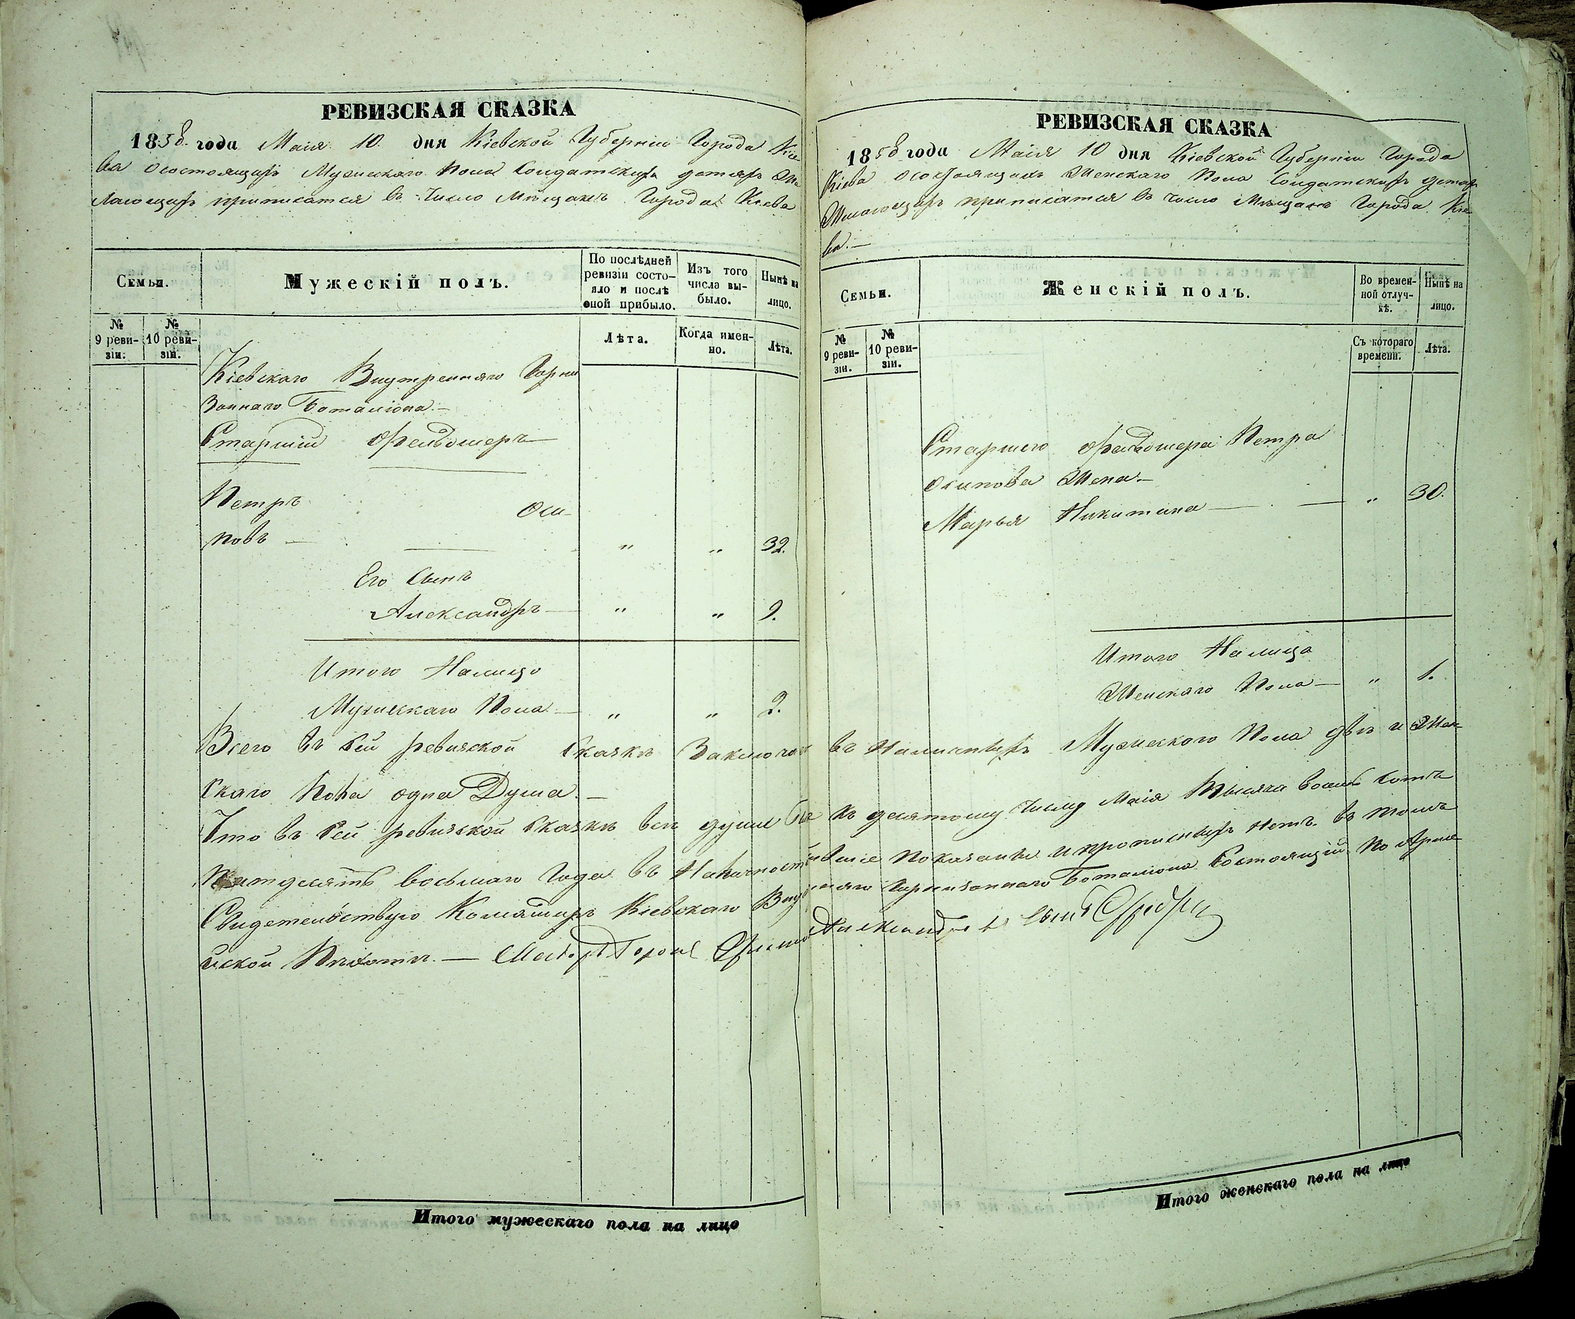 РЕВИЗСКАЯ СКАЗКА
1858 года Маія 10 дня Кіевской Губерніи Города Кіе
ва о состоящихъ Мужескаго Пола Солдатскихъ детяхъ Же
лающихъ приписатся въ Число Мѣщанъ Города Кіева
Семьи.
Мужескій полъ.
По послѣдней ревизіи состояло и послѣ оной прибыло.
Изъ того числа выбыло.
Нынѣ на лицо.
№ 9 ревизіи.
№ 10 ревизіи.
Лѣта.
Когда именно.
Лѣта.
Кіевскаго Внутренняго Гарни
зоннаго Баталіона.—
Старшій Фельдшеръ—
Петръ Оси
повъ — „ „ 32.
Его Сынъ
Александръ — „ „ 9.
Итого Налицо
Мужескаго Пола — „ „ 2.
РЕВИЗСКАЯ СКАЗКА
1858 года Маія 10 дня Кіевской Губерніи Города
Кіева о состоящихъ Женскаго Пола Солдатскихъ детяхъ
Желающихъ приписатся въ число Мѣщанъ Города Кіе
ва.—
Семьи.
Женскій полъ.
Во временной отлучкѣ.
Нынѣ на лицо.
№ 9 ревизіи.
№ 10 ревизіи.
Съ котораго времени.
Лѣта.
Старшего Фельдшера Петра
Осипова Жена.—
Марья Никитина — „ 30.
Итого Налицо
Женскаго Пола — „ 1.
Всего въ сей ревизской Сказкѣ Заключае въ Наличныхъ Мужескаго Пола двѣ и Жен-
скаго Пола одна Душа.—
Что въ сей ревизской Сказкѣ все души къ десятому Числу Маія Тысяча восемь сотъ
Пятдесятъ восьмаго Года въ Наличности показаны и прописныхъ нетъ. въ томъ
Свидетельствую Командиръ Кіевскаго Внутренняго Гарнизоннаго Баталіона Состоящій По Арме
йской Пѣхотѣ. — Маіоръ
Итого мужескаго пола на лицо
Итого женскаго пола на лицо